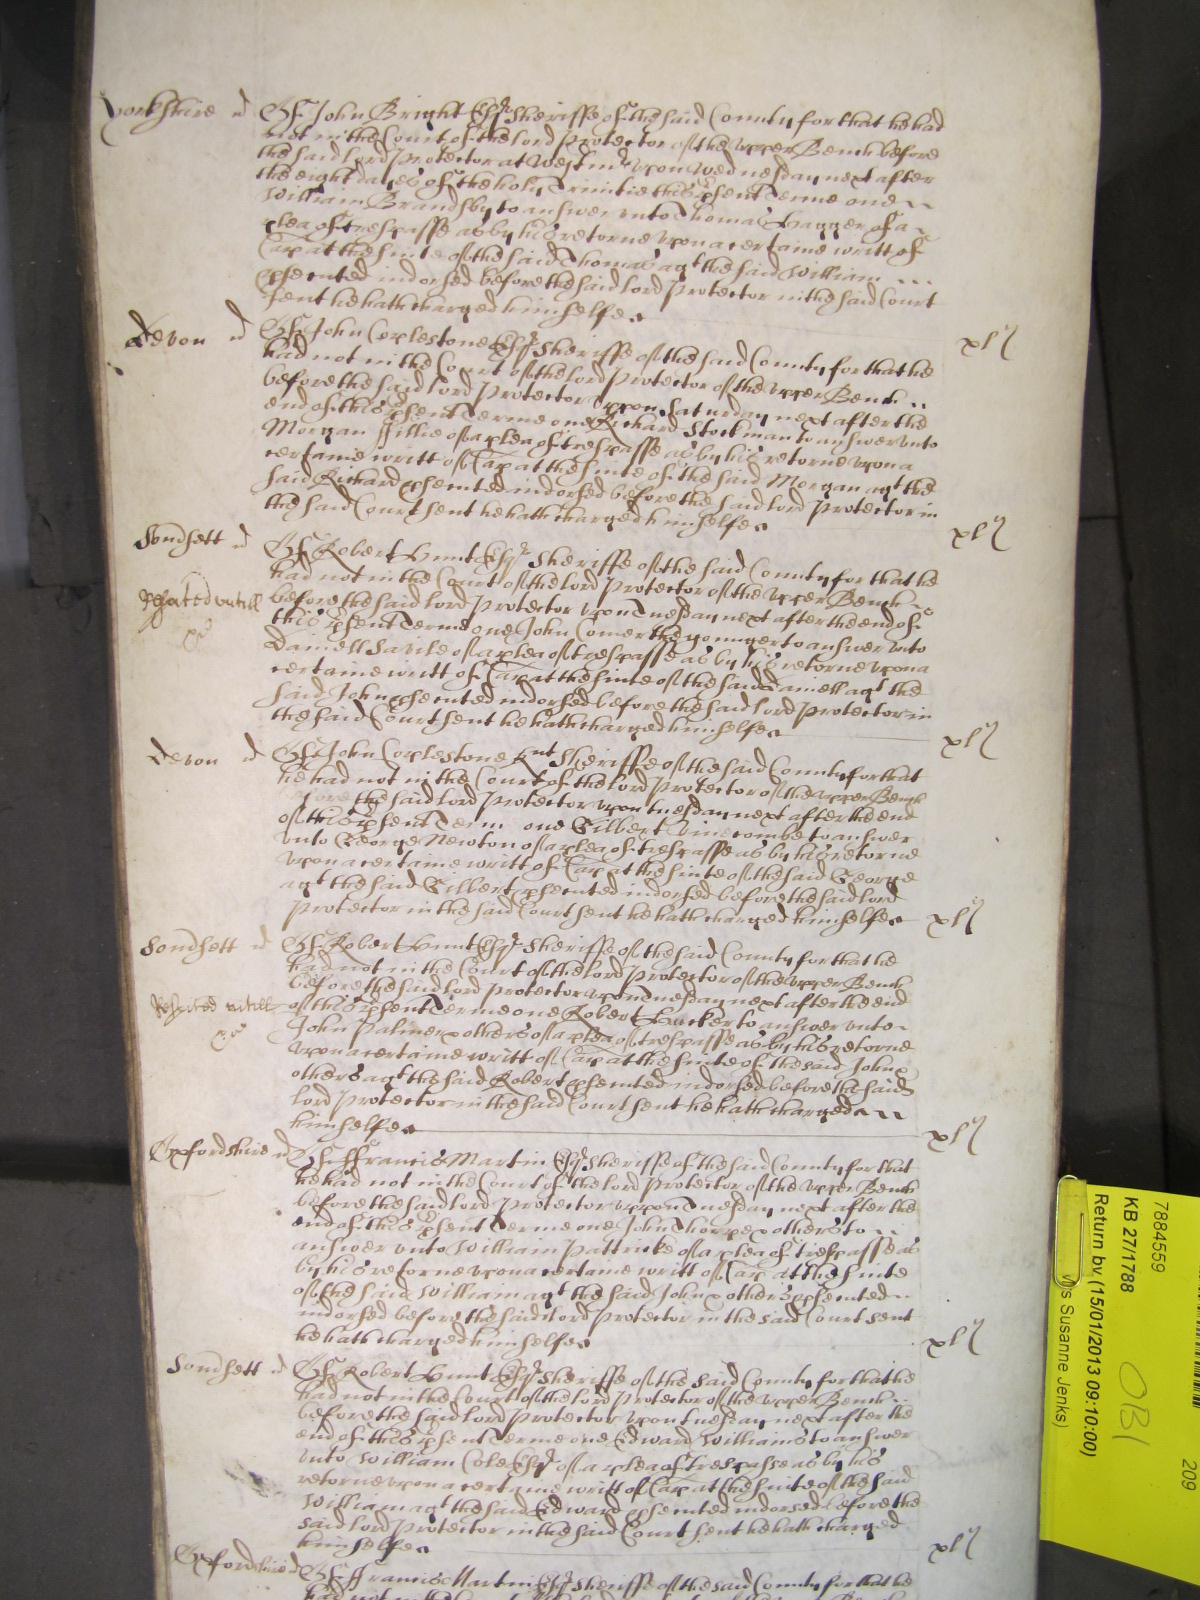 Yorkshire Of John Bright Esqr Sheriffe of the said County for that he had
not in the Court of the lord Protector of the upper Bench before
the said lord Protector at Westmr upon Wednesday next after
the eight dayes of the holy Trinitie this psent Terme one
William Brandsby to answer unto Thomas Hagger of a
plea of trespasse as by his retorne upon a certaine writt of
Cap at the suite of the said Thomas agt the said William
psented indorsed before the said lord Protector in the said Court
sent he hath charged himselfe xls
Devon Of John Coplestone Esqr Sheriffe of the said County for that he
had not in the Court of the lord Protector of the upper Bench
before the said lord Protector upon Saturday next after the
end of this psent Terme one Richard Stockman to answer unto
Morgan of a plea of trespasse as by his retorne upon a
certaine writt of Cap at the suite of the said Morgan agt the
said Richard psented indorsed before the said lord Protector in
the said Court sent he hath charged himselfe xls
Somsett Of Robert Hunt Esqr Sheriffe of the said County for that he
had not in the Court of the lord Protector of the upper Bench
Respited untill before the said lord Protector upon Tuesday next after the end of
this psent Terme one John Comer the younger to answer unto
Daniell Savile of a plea of trespasse as by his retorne upon a
certaine writt of Cap at the suite of the said Daniell agt the
said John psented indorsed before the said lord Protector in
the said Court sent he hath charged himselfe xls
Devon Of John Coplestone Knt Sheriffe of the said County for that
he had not in the Court of the lord Protector of the upper Bench
before the said lord Protector upon Tuesday next after the end
of this psent Term one Gilbert Vinecombe to answer
unto George Newton of a plea of trespasse as by his retorne
upon a certaine writt of Cap at the suite of the said George
agt the said Gilbert psented indorsed before the said lord
Protector in the said Court sent he hath charged himselfe xls
Somsett Of Robert Hunt Esqr Sheriffe of the said County for that he
had not in the Court of the lord Protector of the upper Bench
before the said lord Protector upon Tuesday next after the end
Respited untill of this psent Terme one Robert to answer unto
John Palmer & others of a plea of trespasse as by his retorne
upon a certaine writt of Cap at the suite of the said John &
others agt the said Robert psented indorsed before the said
lord Protector in the said Court sent he hath charged
himselfe xls
Oxfordshire Of Ffrancis Martin Esqr Sheriffe of the said County for that
he had not in the Court of the lord Protector of the upper Bench
before the said lord Protector uppon Tuesday next after the
end of this psent Terme one John Thorpe & others to
answer unto William Pattricke of a plea of trespasse as
by his retorne upon a certaine writt of Cap at the suite
of the said William agt the said John & others psented
indorsed before the said lord Protector in the said Court sent
he hath charged himselfe xls
Somsett Of Robert Hunt Esqr Sheriffe of the said County for that he
had not in the Court of the lord Protector of the upper Bench
before the said lord Protector upon Tuesday next after the
end of this psent Terme one Edward Williams to answer
unto William Cole Esqr of a plea of trespasse as by his
retorne upon a certaine writt of Cap at the suite of the said
William agt the said Edward psented indorsed before the
said lord Protector in the said Court sent he hath charged
himselfe xls
Oxfordshire Of Ffrancis Martin Esqr Sheriffe of the said County for that he
had not in the Court of the lord Protector of the upper Bench
7884559
KB 27/1788
Return by (15/01/2013 09:10:00)
Susanne Jenks)
OB1
209